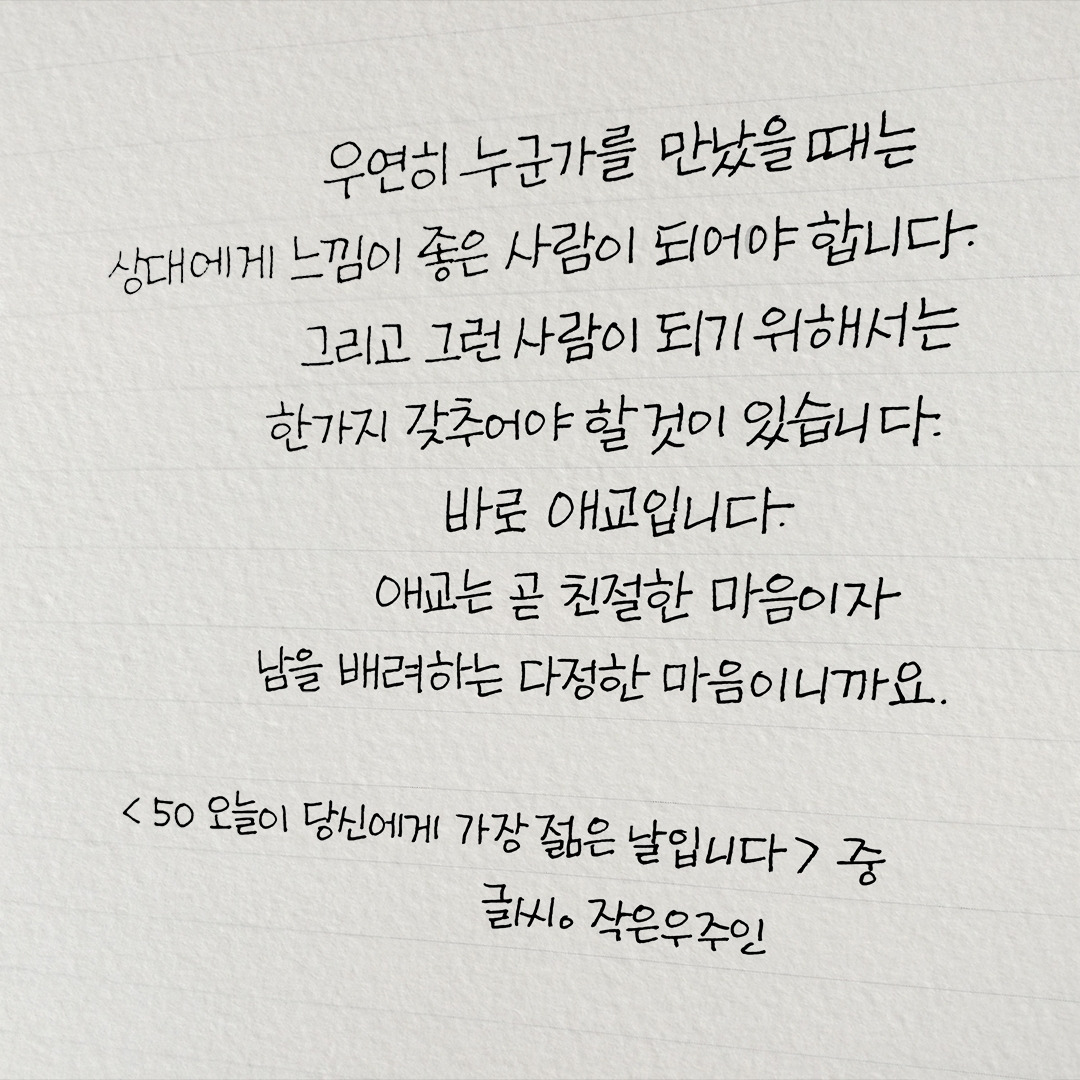 우연히 누군가를 만났을 때는
상대에게 느낌이 좋은 사람이 되어야 합니다.
그리고 그런 사람이 되기 위해서는
한가지 갖추어야 할 것이 있습니다.
바로 애교입니다.
애교는 곧 친절한 마음이자
남을 배려하는 다정한 마음이니까요.
<50 오늘이 당신에게 가장 젊은 날입니다> 중
글씨。작은우주인